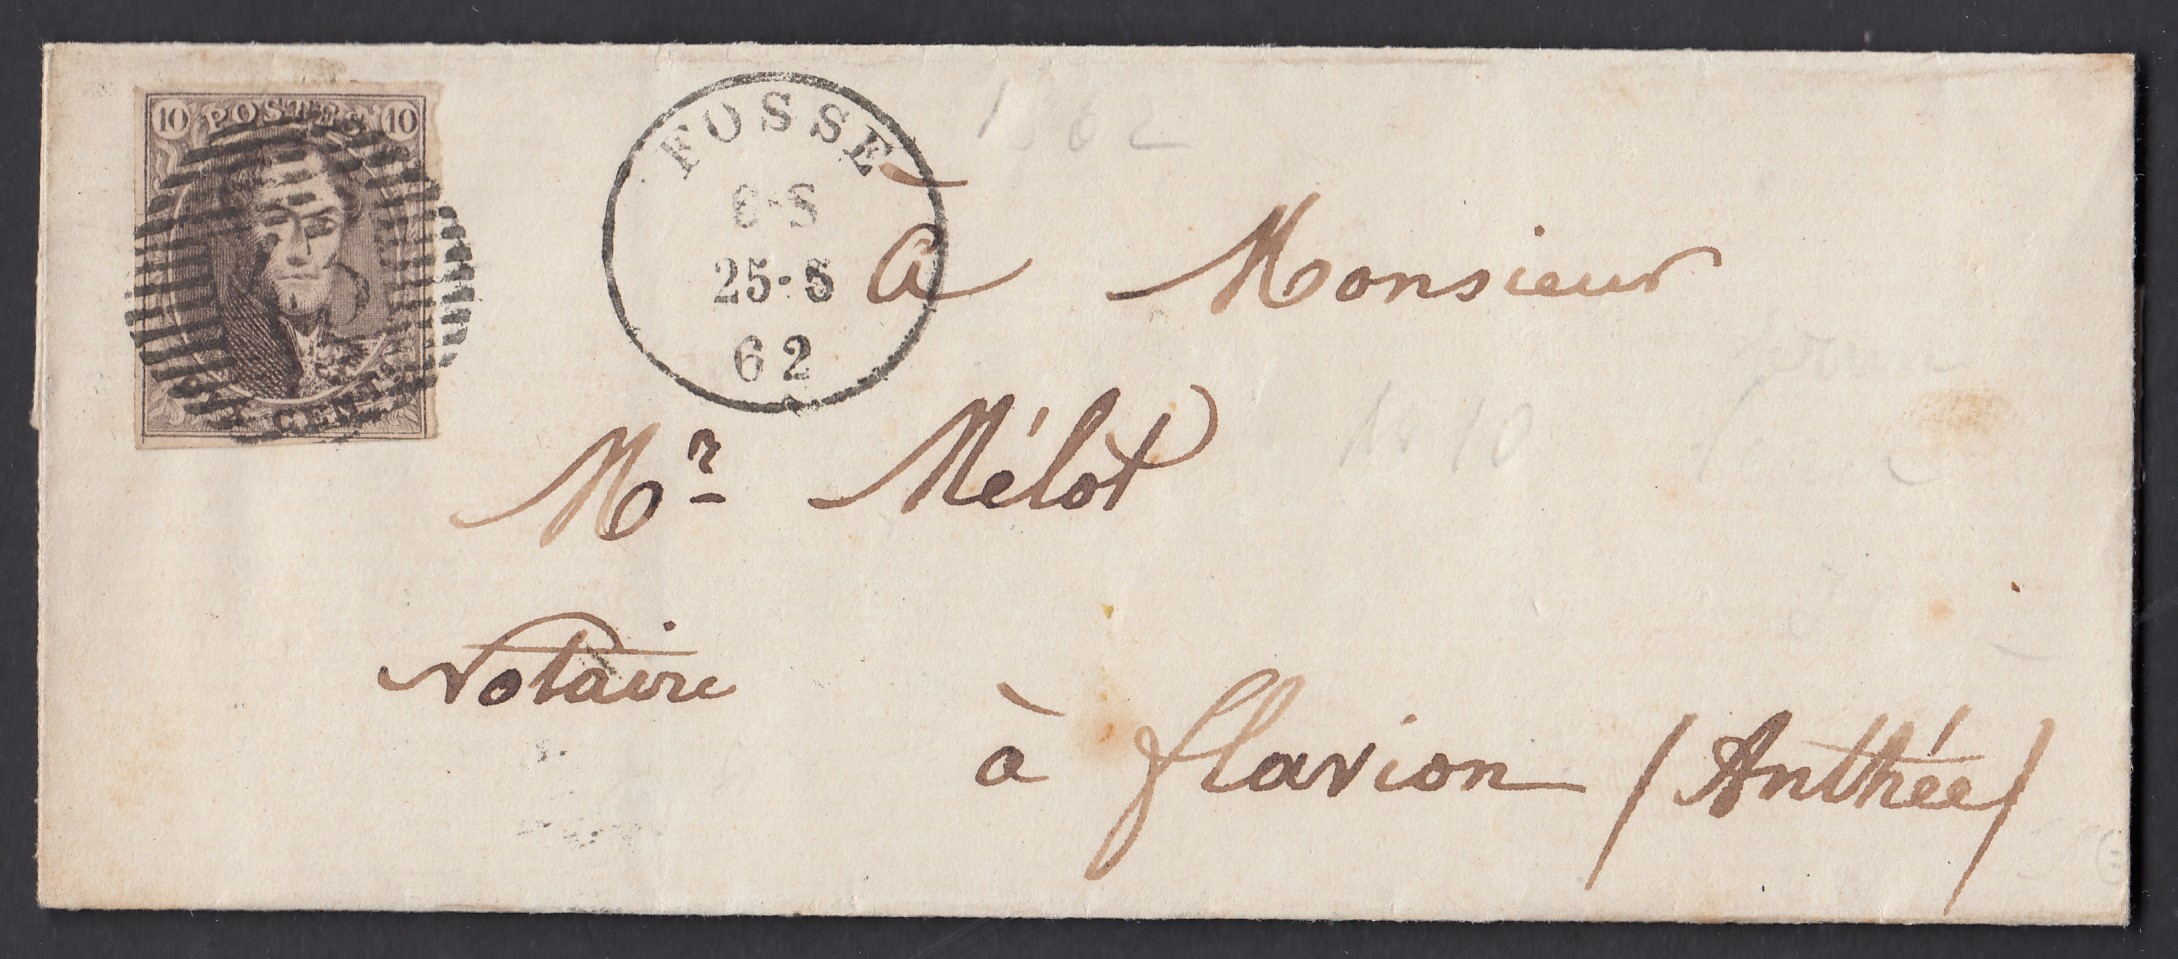 10 POSTES 10
CENT
FOSSE
25-8
62
1862
À Monsieur
Mr Mélot
Notaire
à flavion (Anthée)